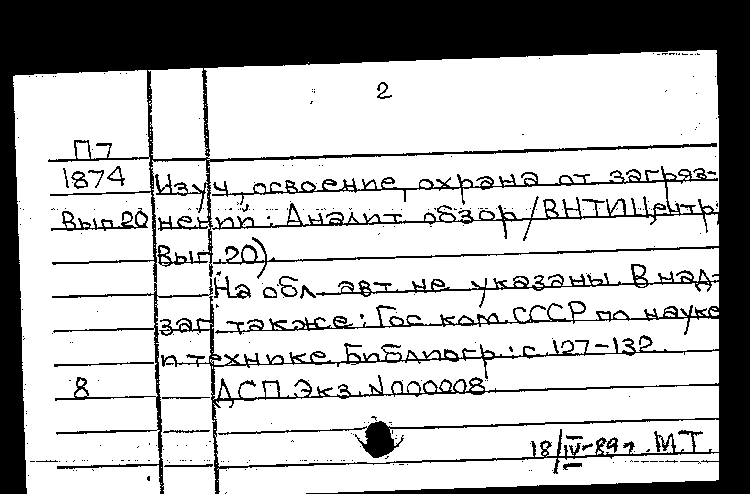 2
П7
1874 Изуч, освоение, охрана от загряз-
Вып.20 нений: Аналит. обзор/ВНТИЦентр;
Вып.20).
На обл. авт. не указаны. В над-
заг. также: Гос. ком. СССР по науке
и технике. Библиогр.: с. 127-132.
8 ДСП. Экз. N000008
18/IV-89г. М.Т.